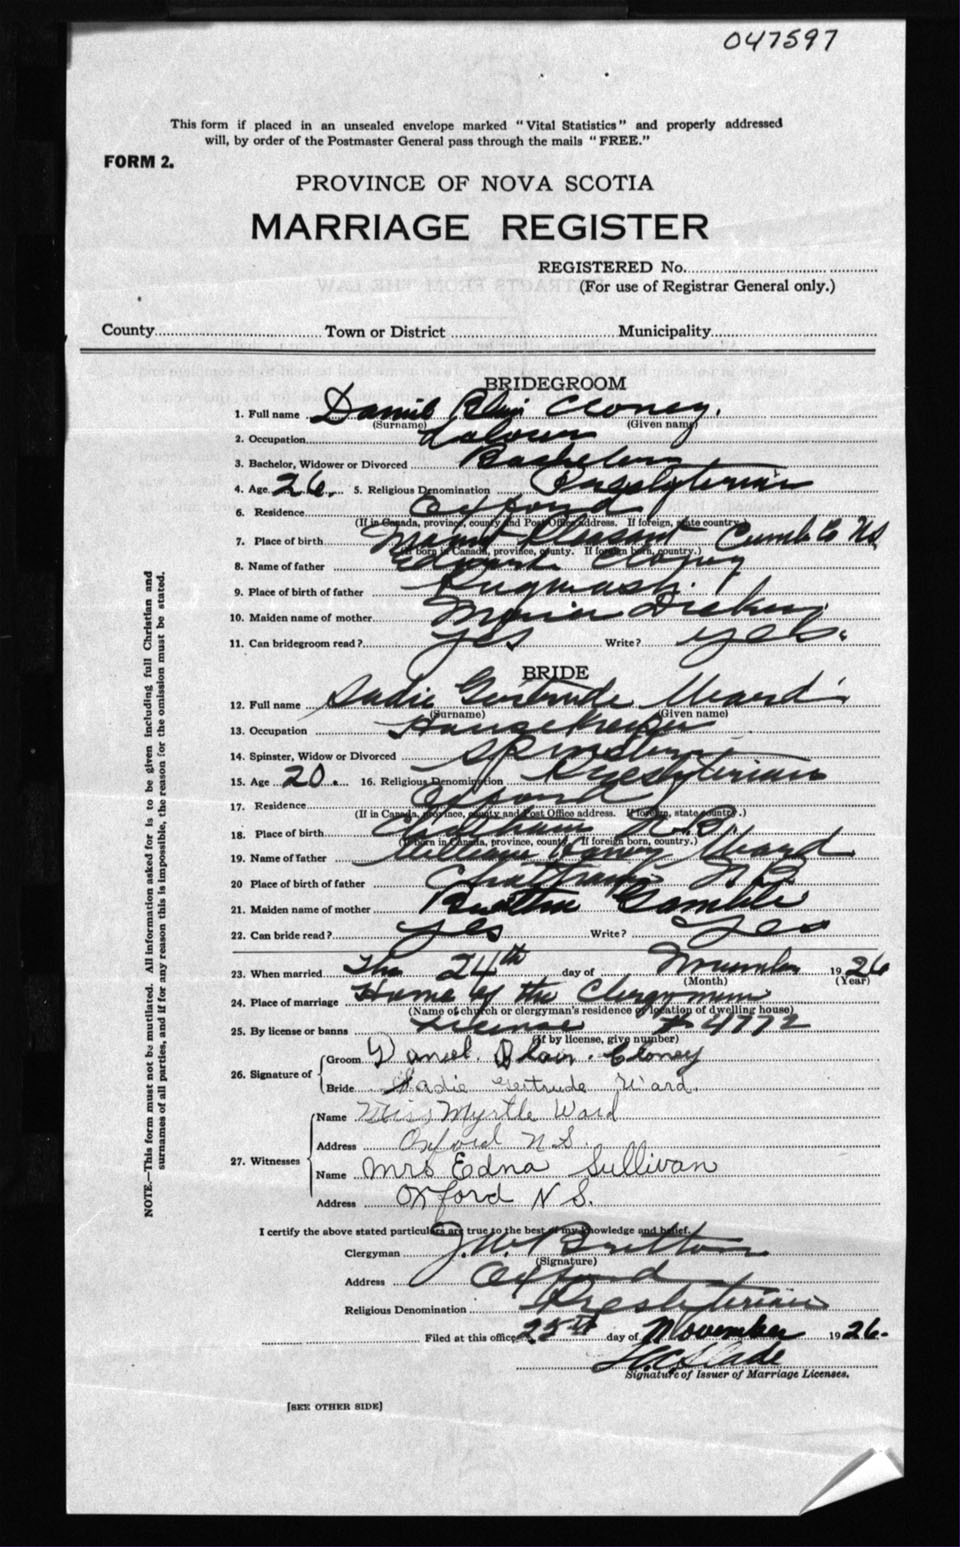 047597
This form if placed in an unsealed envelope marked "Vital Statistics" and properly addressed
will, by order of the Postmaster General pass through the mails "FREE."
FORM 2.
PROVINCE OF NOVA SCOTIA
MARRIAGE REGISTER
REGISTERED No.
(For use of Registrar General only.)
County Town or District Municipality
BRIDEGROOM
1. Full name Daniel Blair Cloney.
(Surname) (Given name)
2. Occupation Labourer
3. Bachelor, Widower or Divorced Bachelor
4. Age 26. 5. Religious Denomination Presbyterian
6. Residence Oxford
(If in Canada, province, county and Post Office address. If foreign, state country.)
7. Place of birth Mount Pleasant Cumb. Co NS.
(If born in Canada, province, county. If foreign born, country.)
8. Name of father Edward Cloney
9. Place of birth of father Pugwash.
10. Maiden name of mother
11. Can bridegroom read? Yes Write? yes.
BRIDE
12. Full name Sadie Gertrude Ward
(Surname) (Given name)
13. Occupation Housekeeper
14. Spinster, Widow or Divorced Spinster
15. Age 20 16. Religious Denomination Presbyterian
17. Residence Oxford
(If in Canada, province, county and Post Office address. If foreign, state country.)
18. Place of birth Chatham N.B.
(If born in Canada, province, county. If foreign born, country.)
19. Name of father William Henry Ward
20 Place of birth of father Chatham N.B.
21. Maiden name of mother Gamble
22. Can bride read? Yes Write? Yes
23. When married The 24th day of November 1926
(Month) (Year)
24. Place of marriage Home of the Clergyman
(Name of church or clergyman's residence or location of dwelling house)
25. By license or banns License # 4772
(If by license, give number)
26. Signature of Groom Daniel Blair Cloney
Bride Sadie Gertrude Ward.
27. Witnesses Name Miss Myrtle Ward
Address Oxford N S.
Name Mrs Edna Sullivan
Address Oxford N S.
I certify the above stated particulars are true to the best of my knowledge and belief.
Clergyman J. W. Britton
(Signature)
Address Oxford
Religious Denomination Presbyterian
Filed at this office 25th day of November 1926.
Slade
Signature of Issuer of Marriage Licenses.
[SEE OTHER SIDE]
NOTE.—This form must not be mutilated. All information asked for is to be given including full Christian and
surnames of all parties, and if for any reason this is impossible, the reason for the omission must be stated.